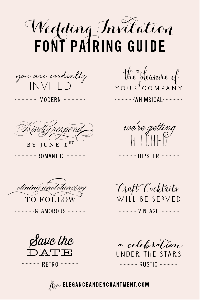 Wedding Invitation
FONT PAIRING GUIDE
you are cordially
INVITED
MODERN
the pleasure of
YOUR COMPANY
WHIMSICAL
Kindly respond
BY JUNE 1ST
ROMANTIC
we're getting
HITCHED
HIPSTER
dining and dancing
TO FOLLOW
GLAMOROUS
Craft Cocktails
WILL BE SERVED
VINTAGE
Save the
DATE
RETRO
a celebration
UNDER THE STARS
RUSTIC
from ELEGANCEANDENCHANTMENT.COM